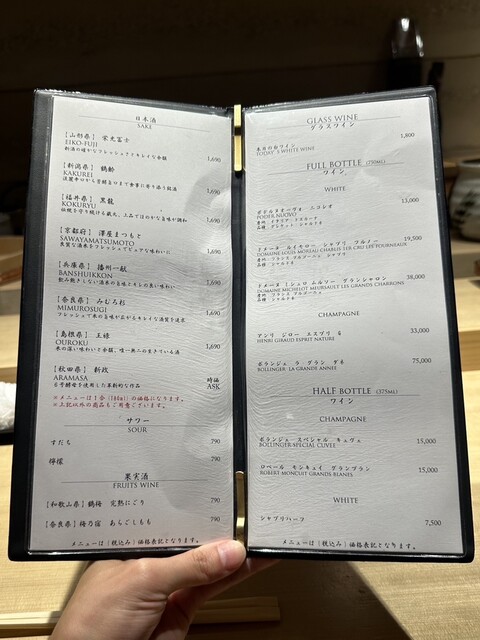 日本酒
SAKE
【山形県】 栄光冨士
EIKO-FUJI 1,690
【新潟県】 鶴齢
KAKUREI 1,690
【福井県】 黒龍
KOKURYU 1,690
【京都府】 澤屋まつもと
SAWAYAMATSUMOTO 1,690
【兵庫県】 播州一献
BANSHUIKKON 1,690
【奈良県】 みむろ杉
MIMUROSUGI 1,690
【島根県】 王祿
OUROKU 1,690
【秋田県】 新政 時価
ARAMASA ASK
6号酵母を使用した革新的な作品
※メニューは1合(180ml)の価格になります。
※上記以外の商品もご用意ございます。
サワー
SOUR
すだち 790
檸檬 790
果実酒
FRUITS WINE
【和歌山県】 鶴梅 完熟にごり 790
【奈良県】 梅乃宿 あらごしもも 790
メニューは(税込み)価格表記となります。
GLASS WINE
グラスワイン
本日の白ワイン
TODAY'S WHITE WINE 1,800
FULL BOTTLE (750ML)
ワイン
WHITE
PODER NUOVO 13,000
DOMAINE LOUIS MOREAU CHABLIS 1ER CRU LES FOURNEAUX 19,500
DOMAINE MICHELOT MEURSAULT LES GRANDS CHARRONS 38,000
CHAMPAGNE
アンリ ジロー エスプリ
HENRI GIRAUD ESPRIT NATURE 33,000
ボランジェ ラ グラン ダネ
BOLLINGER LA GRANDE ANNEE 75,000
HALF BOTTLE (375ML)
ワイン
CHAMPAGNE
ボランジェ スペシャル キュヴェ
BOLLINGER SPECIAL CUVEE 15,000
ロベール モンキュイ グランブラン
ROBERT MONCUIT GRANDS BLANES 15,000
WHITE
シャブリハーフ 7,500
メニューは(税込み)価格表記となります。